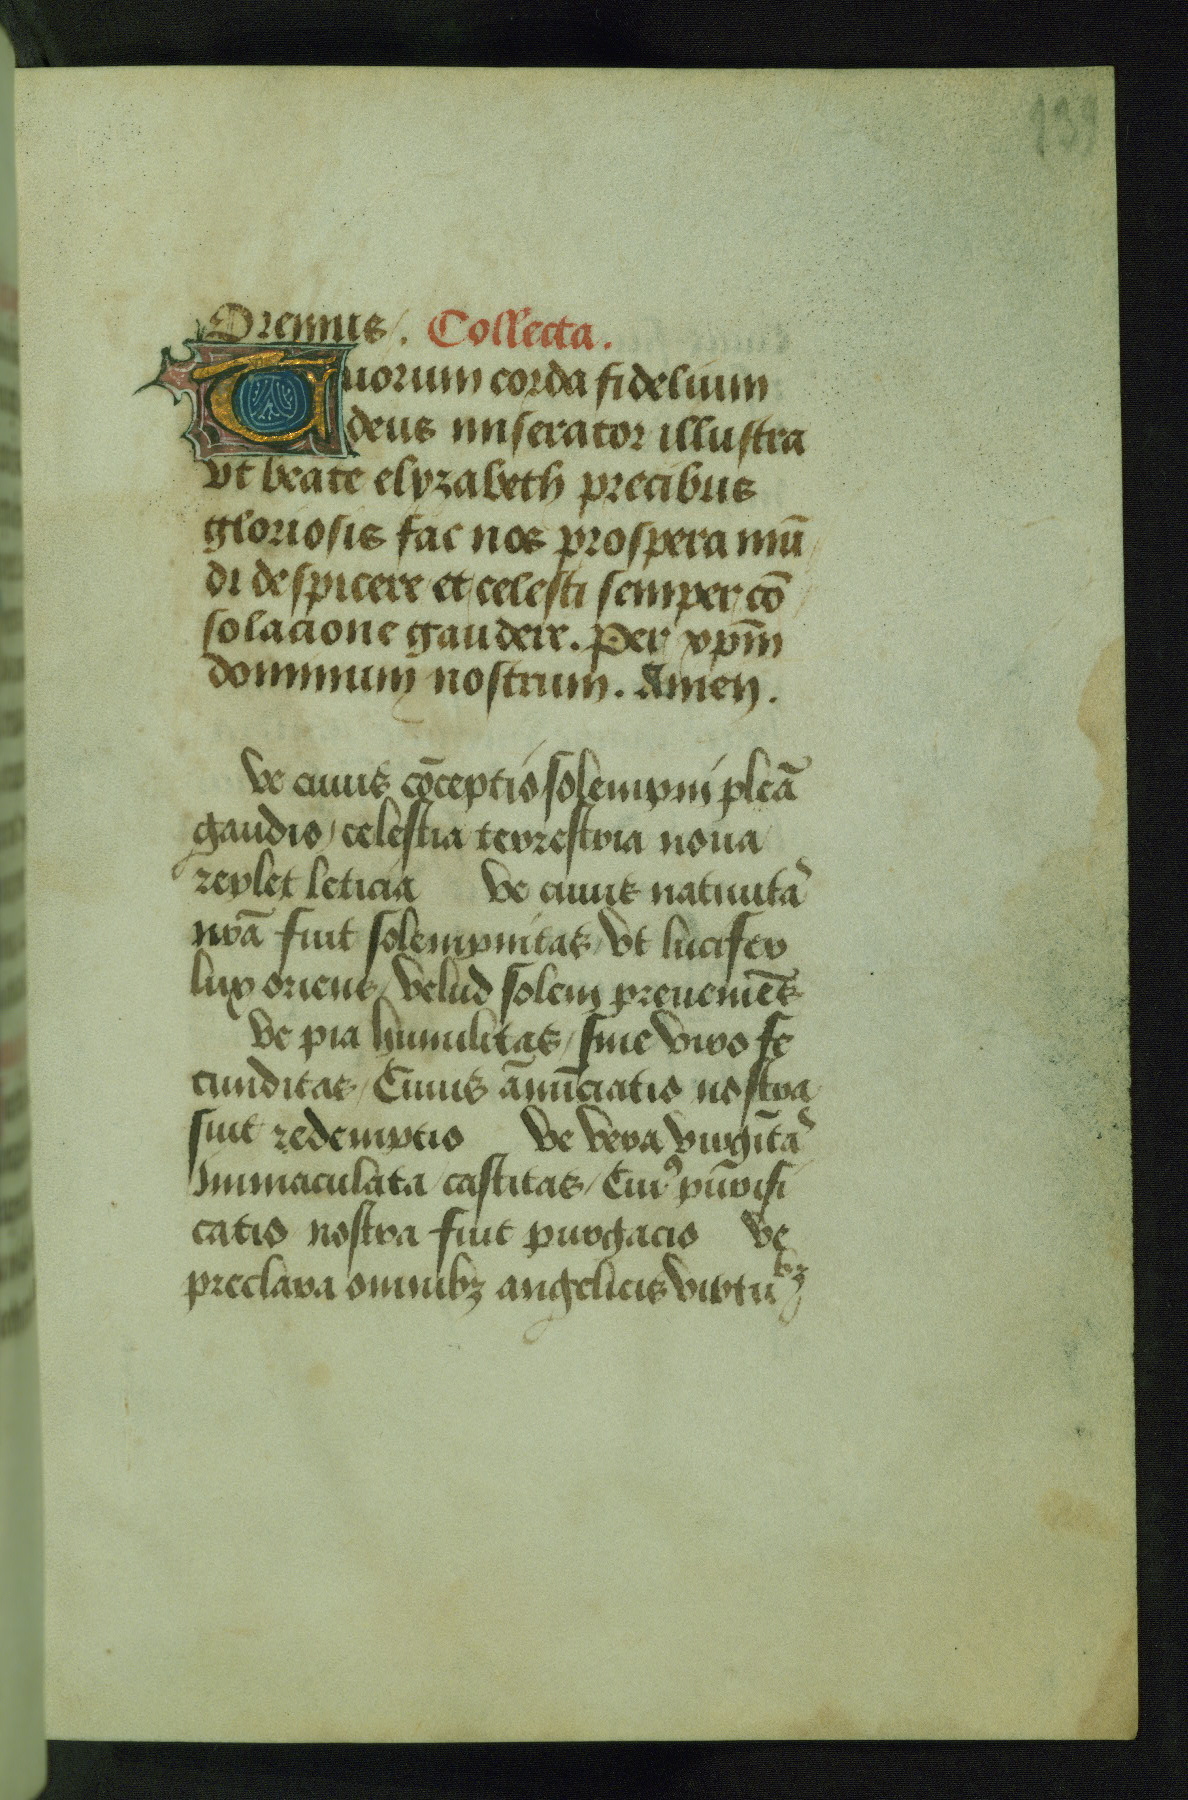 139
Oremus /. Collecta.
Tuorum corda fidelium
deus miserator illustra
vt beate elyzabeth precibus
gloriosis fac nos prospera mū
di despicere et celesti semper cō
solacione gaudere. Per xpm̄
dominum nostrum. Amen.
ve cuius cōceptio solempni plēā
gaudio / celestia terrestria noua
replet leticia ve cuius natiuita
nrā fuit solempnitas / vt lucifer
lux oriens / velud solem preueniēs
ve pia humilitas / sine viro fe
cunditas / Cuius ānūciatio nostra
fuit redemptio ve vera virgīta
Immaculata castitas / Cuiꝰ pūrifi
catio nostra fuit purgacio ve
preclara omnibꝫ angelicis virtu
bꝫ